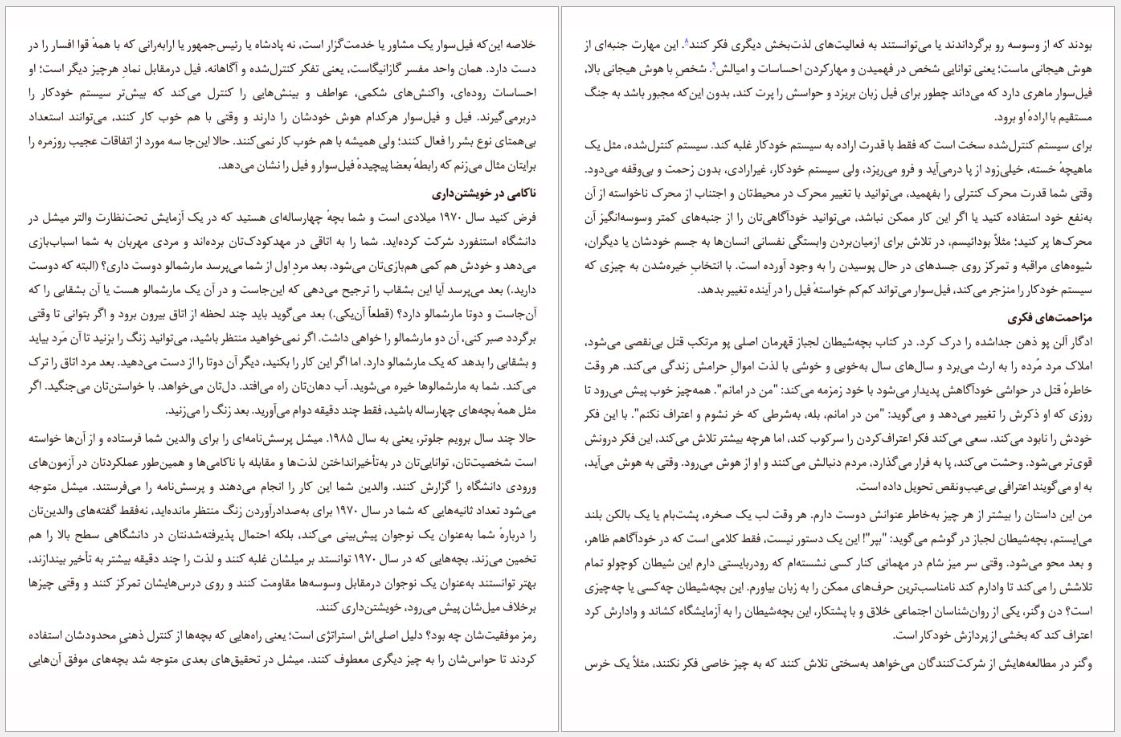 خلاصه این‌که فیل‌سوار یک مشاور یا خدمت‌گزار است، نه پادشاه یا رئیس‌جمهور یا ارابه‌رانی که با همهٔ قوا افسار را در
دست دارد. همان واحد مفسر گازانیگاست، یعنی تفکر کنترل‌شده و آگاهانه. فیل درمقابل نمادِ هرچیز دیگر است؛ او
احساسات روده‌ای، واکنش‌های شکمی، عواطف و بینش‌هایی را کنترل می‌کند که بیش‌تر سیستم خودکار را
دربرمی‌گیرند. فیل و فیل‌سوار هرکدام هوش خودشان را دارند و وقتی با هم خوب کار کنند، می‌توانند استعداد
بی‌همتای نوع بشر را فعال کنند؛ ولی همیشه با هم خوب کار نمی‌کنند. حالا این‌جا سه مورد از اتفاقات عجیب روزمره را
برایتان مثال می‌زنم که رابطهٔ بعضا پیچیدهٔ فیل‌سوار و فیل را نشان می‌دهد.
ناکامی در خویشتن‌داری
فرض کنید سال ۱۹۷۰ میلادی است و شما بچهٔ چهارساله‌ای هستید که در یک آزمایش تحت‌نظارت والتر میشل در
دانشگاه استنفورد شرکت کرده‌اید. شما را به اتاقی در مهدکودک‌تان برده‌اند و مردی مهربان به شما اسباب‌بازی
می‌دهد و خودش هم کمی هم‌بازی‌تان می‌شود. بعد مردِ اول از شما می‌پرسد مارشمالو دوست داری؟ (البته که دوست
دارید.) بعد می‌پرسد آیا این بشقاب را ترجیح می‌دهی که این‌جاست و در آن یک مارشمالو هست یا آن بشقابی را که
آن‌جاست و دوتا مارشمالو دارد؟ (قطعاً آن‌یکی.) بعد می‌گوید باید چند لحظه از اتاق بیرون برود و اگر بتوانی تا وقتی
برگردد صبر کنی، آن دو مارشمالو را خواهی داشت. اگر نمی‌خواهید منتظر باشید، می‌توانید زنگ را بزنید تا آن مَرد بیاید
و بشقابی را بدهد که یک مارشمالو دارد. اما اگر این کار را بکنید، دیگر آن دوتا را از دست می‌دهید. بعد مرد اتاق را ترک
می‌کند. شما به مارشمالوها خیره می‌شوید. آب دهان‌تان راه می‌افتد. دل‌تان می‌خواهد. با خواستن‌تان می‌جنگید. اگر
مثل همهٔ بچه‌های چهارساله باشید، فقط چند دقیقه دوام می‌آورید. بعد زنگ را می‌زنید.
حالا چند سال برویم جلوتر، یعنی به سال ۱۹۸۵. میشل پرسش‌نامه‌ای را برای والدین شما فرستاده و از آن‌ها خواسته
است شخصیت‌تان، توانایی‌تان در به‌تأخیرانداختن لذت‌ها و مقابله با ناکامی‌ها و همین‌طور عملکردتان در آزمون‌های
ورودی دانشگاه را گزارش کنند. والدین شما این کار را انجام می‌دهند و پرسش‌نامه را می‌فرستند. میشل متوجه
می‌شود تعداد ثانیه‌هایی که شما در سال ۱۹۷۰ برای به‌صدادرآوردن زنگ منتظر مانده‌اید، نه‌فقط گفته‌های والدین‌تان
را دربارهٔ شما به‌عنوان یک نوجوان پیش‌بینی می‌کند، بلکه احتمال پذیرفته‌شدنتان در دانشگاهی سطح بالا را هم
تخمین می‌زند. بچه‌هایی که در سال ۱۹۷۰ توانستند بر میلشان غلبه کنند و لذت را چند دقیقه بیشتر به تأخیر بیندازند،
بهتر توانستند به‌عنوان یک نوجوان درمقابل وسوسه‌ها مقاومت کنند و روی درس‌هایشان تمرکز کنند و وقتی چیزها
برخلاف میل‌شان پیش می‌رود، خویشتن‌داری کنند.
رمز موفقیت‌شان چه بود؟ دلیل اصلی‌اش استراتژی است؛ یعنی راه‌هایی که بچه‌ها از کنترل ذهنیِ محدودشان استفاده
کردند تا حواس‌شان را به چیز دیگری معطوف کنند. میشل در تحقیق‌های بعدی متوجه شد بچه‌های موفق آن‌هایی
بودند که از وسوسه رو برگرداندند یا می‌توانستند به فعالیت‌های لذت‌بخش دیگری فکر کنند۸. این مهارت جنبه‌ای از
هوش هیجانی ماست؛ یعنی توانایی شخص در فهمیدن و مهارکردن احساسات و امیالش۹. شخصِ با هوش هیجانی بالا،
فیل‌سوار ماهری دارد که می‌داند چطور برای فیل زبان بریزد و حواسش را پرت کند، بدون این‌که مجبور باشد به جنگ
مستقیم با ارادهٔ او برود.
برای سیستم کنترل‌شده سخت است که فقط با قدرت اراده به سیستم خودکار غلبه کند. سیستم کنترل‌شده، مثل یک
ماهیچهٔ خسته، خیلی‌زود از پا درمی‌آید و فرو می‌ریزد، ولی سیستم خودکار، غیرارادی، بدون زحمت و بی‌وقفه می‌دود.
وقتی شما قدرت محرک کنترلی را بفهمید، می‌توانید با تغییر محرک در محیط‌تان و اجتناب از محرک ناخواسته از آن
به‌نفع خود استفاده کنید یا اگر این کار ممکن نباشد، می‌توانید خودآگاهی‌تان را از جنبه‌های کمتر وسوسه‌انگیز آن
محرک‌ها پر کنید؛ مثلاً بودائیسم، در تلاش برای ازمیان‌بردن وابستگی نفسانی انسان‌ها به جسم خودشان یا دیگران،
شیوه‌های مراقبه و تمرکز روی جسدهای در حال پوسیدن را به وجود آورده است. با انتخابِ خیره‌شدن به چیزی که
سیستم خودکار را منزجر می‌کند، فیل‌سوار می‌تواند کم‌کم خواستهٔ فیل را در آینده تغییر بدهد.
مزاحمت‌های فکری
ادگار آلن پو ذهن جداشده را درک کرد. در کتاب بچه‌شیطان لجباز قهرمان اصلی پو مرتکب قتل بی‌نقصی می‌شود،
املاک مرد مُرده را به ارث می‌برد و سال‌های سال به‌خوبی و خوشی با لذت اموالِ حرامش زندگی می‌کند. هر وقت
خاطرهٔ قتل در حواشی خودآگاهش پدیدار می‌شود با خود زمزمه می‌کند: "من در امانم". همه‌چیز خوب پیش می‌رود تا
روزی که او ذکرش را تغییر می‌دهد و می‌گوید: "من در امانم، بله، به‌شرطی که خر نشوم و اعتراف نکنم". با این فکر
خودش را نابود می‌کند. سعی می‌کند فکر اعتراف‌کردن را سرکوب کند، اما هرچه بیشتر تلاش می‌کند، این فکر درونش
قوی‌تر می‌شود. وحشت می‌کند، پا به فرار می‌گذارد، مردم دنبالش می‌کنند و او از هوش می‌رود. وقتی به هوش می‌آید،
به او می‌گویند اعترافی بی‌عیب‌ونقص تحویل داده است.
من این داستان را بیشتر از هر چیز به‌خاطر عنوانش دوست دارم. هر وقت لب یک صخره، پشت‌بام یا یک بالکن بلند
می‌ایستم، بچه‌شیطان لجباز در گوشم می‌گوید: "بپر"! این یک دستور نیست، فقط کلامی است که در خودآگاهم ظاهر،
و بعد محو می‌شود. وقتی سر میز شام در مهمانی کنار کسی نشسته‌ام که رودربایستی دارم این شیطان کوچولو تمام
تلاشش را می‌کند تا وادارم کند نامناسب‌ترین حرف‌های ممکن را به زبان بیاورم. این بچه‌شیطان چه‌کسی یا چه‌چیزی
است؟ دن وگنر، یکی از روان‌شناسان اجتماعی خلاق و با پشتکار، این بچه‌شیطان را به آزمایشگاه کشاند و وادارش کرد
اعتراف کند که بخشی از پردازش خودکار است.
وگنر در مطالعه‌هایش از شرکت‌کنندگان می‌خواهد به‌سختی تلاش کنند که به چیز خاصی فکر نکنند، مثلاً یک خرس